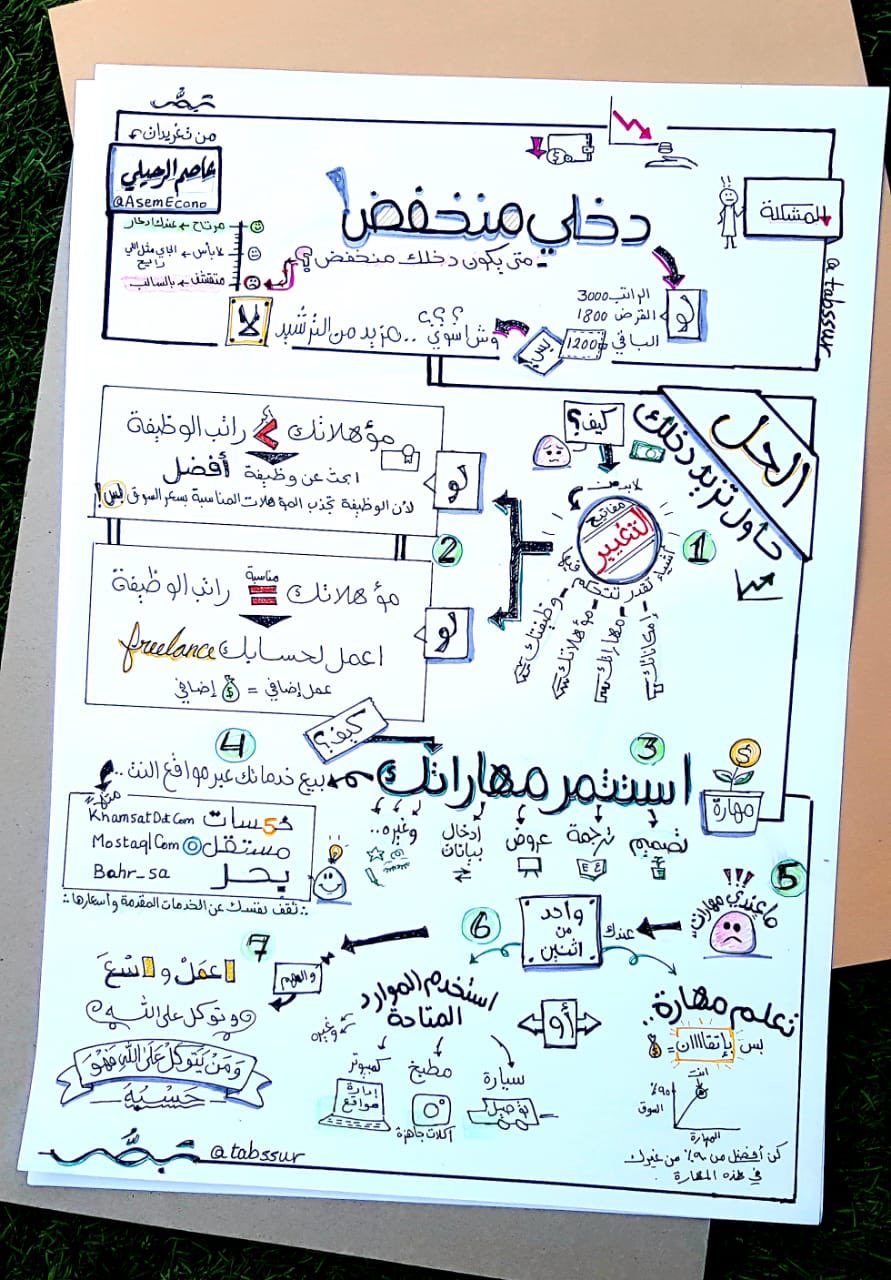 تبصُّر
من تغريدات
عاصم الرحيلي
@AsemEcono
المشكلة
دخلي منخفض
متى يكون دخلك منخفض؟
مرتاح ← عندك ادخار
لا بأس ← الجاي مثل اللي رايح
متقشف ← بالسالب
@tabssur
لو
الراتب 3000
القرض 1800
الباقي 1200
بس!
وش اسوي ؟؟؟ .. مزيد من الترشيد
لا
الحل
حاول تزيد دخلك
كيف؟
لابد من
1
مفاتيح
التغيير
أشياء تقدر تتحكم فيها
- إمكاناتك
- مهاراتك
- مؤهلاتك
- وظيفتك
2
لو
مؤهلاتك > راتب الوظيفة
ابحث عن وظيفة أفضل
لأن الوظيفة تجذب المؤهلات المناسبة بسعر السوق بس!
لو
مؤهلاتك = راتب الوظيفة
مناسبة
اعمل لحسابك freelance
عمل إضافي = $ إضافي
3
استثمر مهاراتك
مهارة
$
تصميم
ترجمة
عروض
إدخال بيانات
وغيره..
كيف؟
4
بيع خدماتك عبر مواقع النت ..
منها:
خمسات KhamsatDotCom
مستقل MostaqlCom
بحر Bahr_sa
:: ثقف نفسك عن الخدمات المقدمة وأسعارها ::
5
!!!
ما عندي مهارات ..
عندك
واحد
من
اثنين
6
تعلم مهارة ..
بس بإتقااااان = $
أنت
90%
السوق
المهارة
كن أفضل من 90% من غيرك
في هذه المهارة
أو
استخدم الموارد
المتاحة
سيارة
توصيل
مطبخ
أكلات جاهزة
كمبيوتر
إدارة
مواقع
وغيره
7
والمهم
اعمَلْ و اسْعَ
وتوكل على الله
وَمَنْ يَتَوَكَّلْ عَلَى اللَّهِ فَهُوَ
حَسْبُهُ
تبصُّر @tabssur